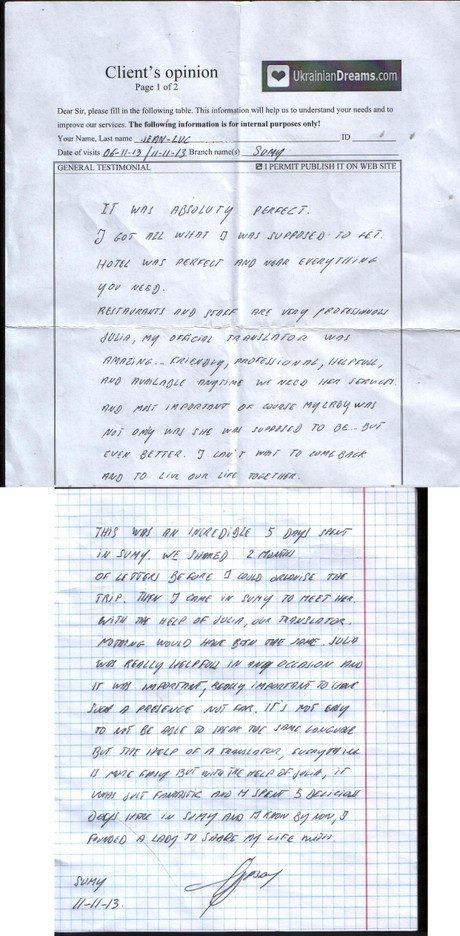 Client's opinion
Page 1 of 2
UkrainianDreams.com
Dear Sir, please fill in the following table. This information will help us to understand your needs and to
improve our services. The following information is for internal purposes only!
Your Name, Last name JEAN-LUC ID
Date of visits 06-11-13 / 11-11-13 Branch name(s) SUMY
GENERAL TESTIMONIAL I PERMIT PUBLISH IT ON WEB SITE
IT WAS ABSOLUTY PERFECT.
I GOT ALL WHAT I WAS SUPPOSED TO GET.
HOTEL WAS PERFECT AND NEAR EVERYTHING
YOU NEED.
RESTAURANTS AND STAFF ARE VERY PROFESSIONALS
JULIA, MY OFFICIAL TRANSLATOR WAS
AMAZING.. FRIENDLY, PROFESSIONAL, HELPFULL,
AND AVAILABLE ANYTIME WE NEED HER SERVICES.
AND MOST IMPORTANT OF COURSE MY LADY WAS
NOT ONLY WAS SHE WAS SUPPOSED TO BE.. BUT
EVEN BETTER. I CAN'T WAIT TO COME BACK
AND TO LIVE OUR LIFE TOGETHER.
THIS WAS AN INCREDIBLE 5 DAYS SPENT
IN SUMY. WE SHARED 2 MONTH
OF LETTERS BEFORE I COULD ORGANISE THE
TRIP. THEN I CAME IN SUMY TO MEET HER.
WITH THE HELP OF JULIA, OUR TRANSLATOR.
NOTHING WOULD HAVE BEEN THE SAME. JULIA
WAS REALLY HELPFULL IN ANY OCCASION AND
IT WAS IMPORTANT, REALLY IMPORTANT TO HAVE
SUCH A PRESENCE NOT FAR. IT'S NOT EASY
TO NOT BE ABLE TO SPEAK THE SAME LANGUAGE
BUT THE HELP OF A TRANSLATOR, EVERYTHING
IS MORE EASY BUT WITH THE HELP OF JULIA, IT
WAS JUST FANTASTIC AND I SPENT 5 DELICIOUS
DAYS HERE IN SUMY AND I KNOW BY NOW, I
FOUNDED A LADY TO SHARE MY LIFE WITH.
SUMY
11-11-13